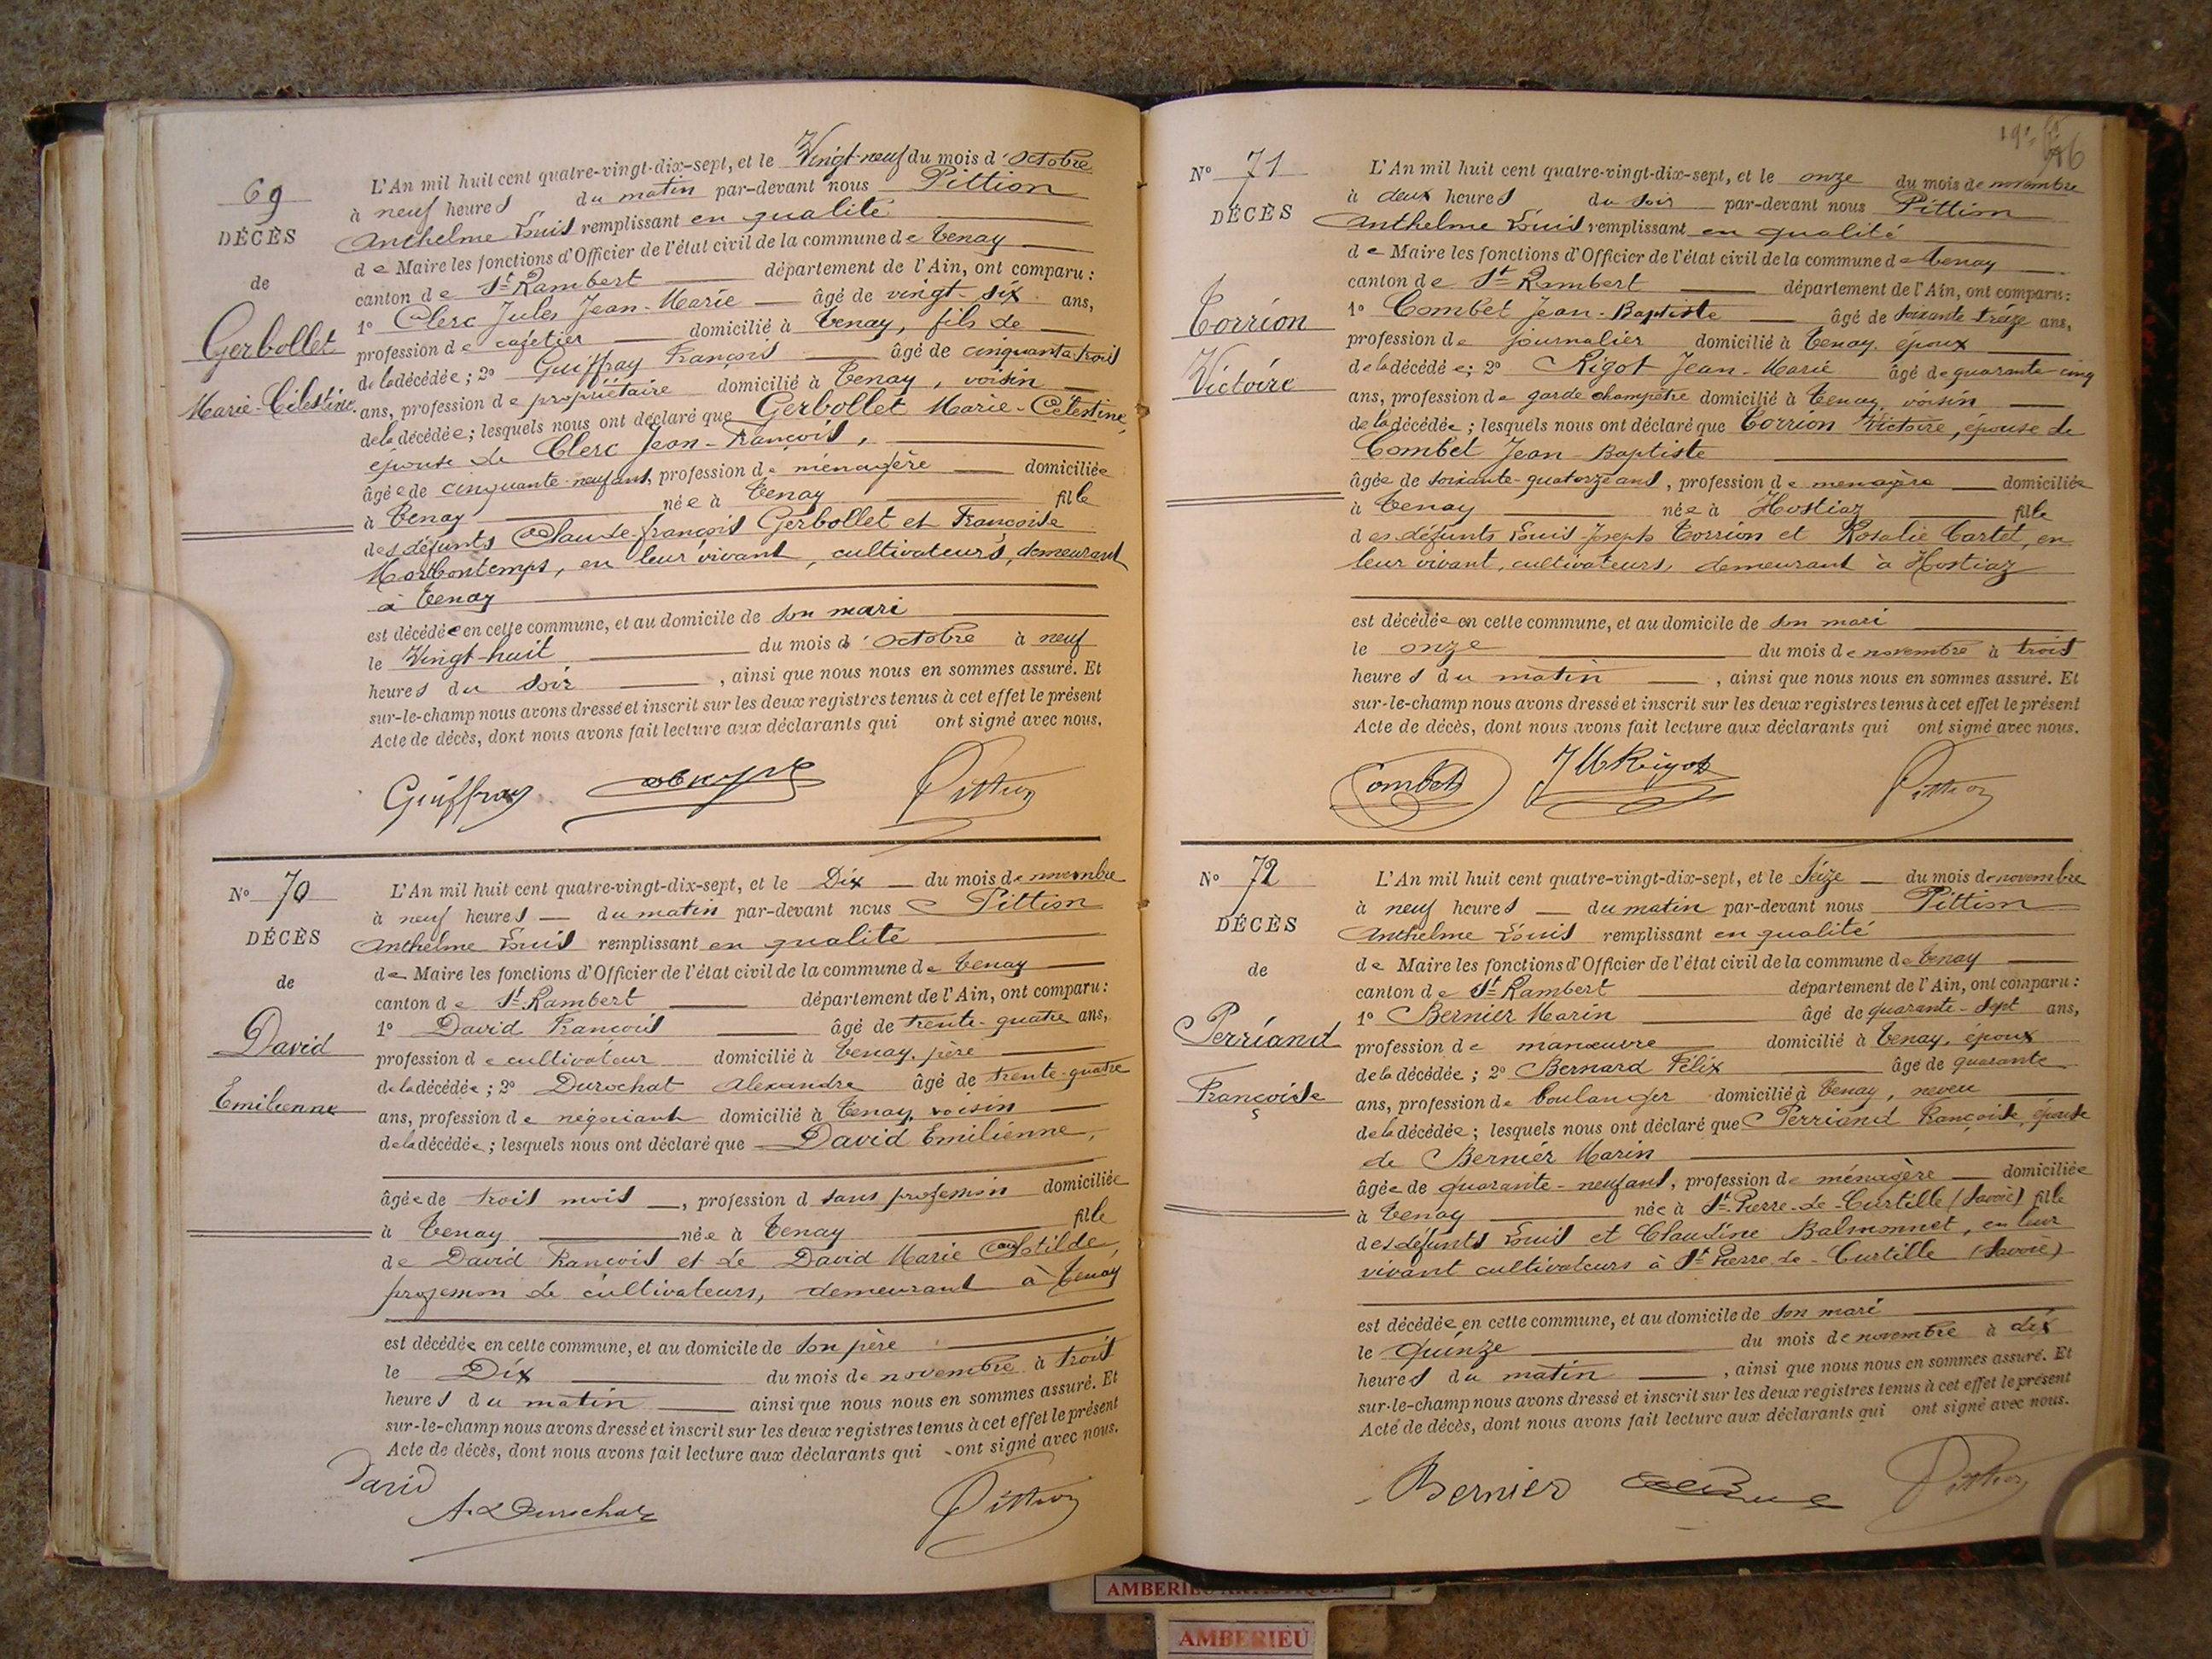 69
DÉCÈS
de
Gerbollet
Marie-Célestine
L'An mil huit cent quatre-vingt-dix-sept, et le Vingt-neuf du mois d'Octobre
à neuf heures du matin par-devant nous Pittion
Anthelme Louis remplissant en qualité
de Maire les fonctions d'Officier de l'état civil de la commune de Tenay
canton de St Rambert département de l'Ain, ont comparu :
1° Clerc Jules Jean-Marie âgé de vingt-six ans,
profession de cafetier domicilié à Tenay, fils de
de la décédée ; 2° Guiffray François âgé de cinquante-trois
ans, profession de propriétaire domicilié à Tenay, voisin
de la décédée ; lesquels nous ont déclaré que Gerbollet Marie-Célestine,
épouse de Clerc Jean-François,
âgée de cinquante-neuf ans, profession de ménagère domiciliée
à Tenay née à Tenay fille
des défunts Claude-françois Gerbollet et Françoise
Montbontemps, en leur vivant, cultivateurs, demeurant
à Tenay
est décédée en cette commune, et au domicile de son mari
le Vingt-huit du mois d'octobre à neuf
heures du soir , ainsi que nous nous en sommes assuré. Et
sur-le-champ nous avons dressé et inscrit sur les deux registres tenus à cet effet le présent
Acte de décès, dont nous avons fait lecture aux déclarants qui ont signé avec nous.
Guiffray Pittion
N° 70
DÉCÈS
de
David
Emilienne
L'An mil huit cent quatre-vingt-dix-sept, et le Dix du mois de novembre
à neuf heures du matin par-devant nous Pittion
Anthelme Louis remplissant en qualité
de Maire les fonctions d'Officier de l'état civil de la commune de Tenay
canton de St Rambert département de l'Ain, ont comparu :
1° David François âgé de trente-quatre ans,
profession de cultivateur domicilié à Tenay, père
de la décédée ; 2° Durochat Alexandre âgé de trente-quatre
ans, profession de négociant domicilié à Tenay, voisin
de la décédée ; lesquels nous ont déclaré que David Emilienne,
âgée de trois mois , profession d sans profession domiciliée
à Tenay née à Tenay fille
de David François et de David Marie Clotilde,
profession de cultivateurs, demeurant à Tenay
est décédée en cette commune, et au domicile de son père
le Dix du mois de novembre à trois
heures du matin ainsi que nous nous en sommes assuré. Et
sur-le-champ nous avons dressé et inscrit sur les deux registres tenus à cet effet le présent
Acte de décès, dont nous avons fait lecture aux déclarants qui ont signé avec nous.
David
A. Durochat Pittion
N° 71
DÉCÈS
Torrion
Victoire
L'An mil huit cent quatre-vingt-dix-sept, et le onze du mois de novembre
à deux heures du soir par-devant nous Pittion
Anthelme Louis remplissant en qualité
de Maire les fonctions d'Officier de l'état civil de la commune de Tenay
canton de St Rambert département de l'Ain, ont comparu :
1° Combet Jean-Baptiste âgé de soixante treize ans,
profession de journalier domicilié à Tenay, époux
de la décédée ; 2° Rigot Jean-Marie âgé de quarante-cinq
ans, profession de garde champêtre domicilié à Tenay, voisin
de la décédée ; lesquels nous ont déclaré que Torrion Victoire, épouse de
Combet Jean-Baptiste
âgée de soixante-quatorze ans, profession de menagère domiciliée
à Tenay née à Hostiaz fille
des défunts Louis Joseph Torrion et Rosalie Cartet, en
leur vivant, cultivateurs, demeurant à Hostiaz
est décédée en cette commune, et au domicile de son mari
le onze du mois de novembre à trois
heures du matin , ainsi que nous nous en sommes assuré. Et
sur-le-champ nous avons dressé et inscrit sur les deux registres tenus à cet effet le présent
Acte de décès, dont nous avons fait lecture aux déclarants qui ont signé avec nous.
Combet J M Rigot Pittion
N° 72
DÉCÈS
de
Perriand
Françoise
L'An mil huit cent quatre-vingt-dix-sept, et le Seize du mois de novembre
à neuf heures du matin par-devant nous Pittion
Anthelme Louis remplissant en qualité
de Maire les fonctions d'Officier de l'état civil de la commune de Tenay
canton de St Rambert département de l'Ain, ont comparu :
1° Bernier Marin âgé de quarante-sept ans,
profession de manœuvre domicilié à Tenay, époux
de la décédée ; 2° Bernard Félix âgé de quarante
ans, profession de boulanger domicilié à Tenay, neveu
de la décédée ; lesquels nous ont déclaré que Perriand Françoise, épouse
de Bernier Marin
âgée de quarante-neuf ans, profession de ménagère domiciliée
à Tenay née à St Pierre-de-Curtille (Savoie) fille
des défunts Louis et Claudine Balmonnet, en leur
vivant cultivateurs à St Pierre-de-Curtille (Savoie)
est décédée en cette commune, et au domicile de son mari
le Quinze du mois de novembre à dix
heures du matin , ainsi que nous nous en sommes assuré. Et
sur-le-champ nous avons dressé et inscrit sur les deux registres tenus à cet effet le présent
Acte de décès, dont nous avons fait lecture aux déclarants qui ont signé avec nous.
Bernier Pittion
AMBERIEU